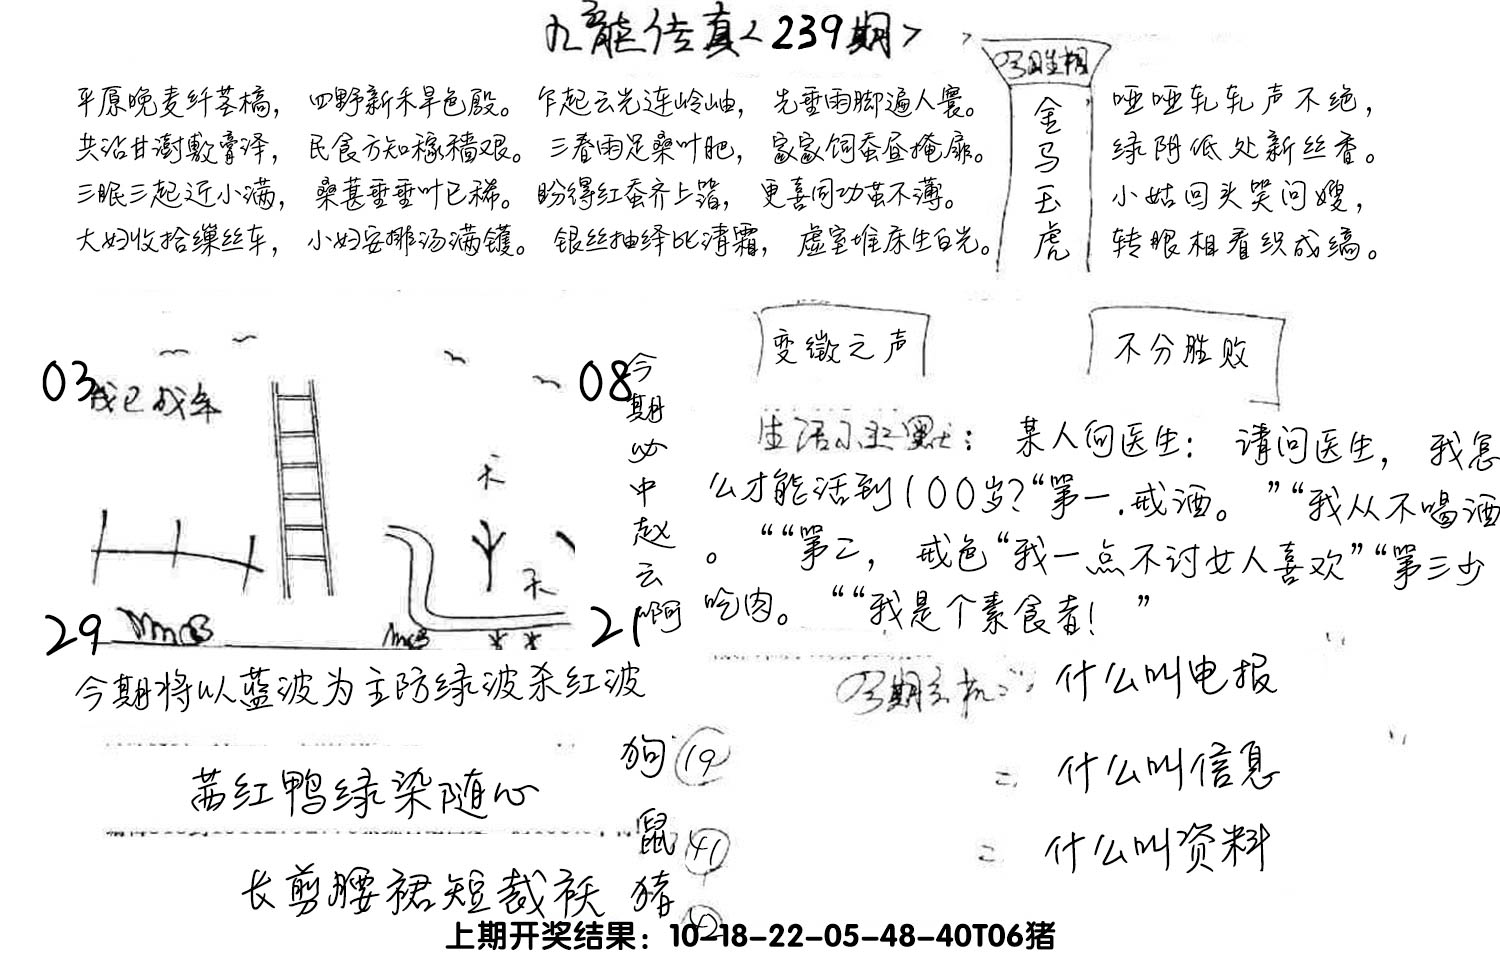 九龙传真<239期>
今期生相
金马玉虎
平原晚麦纤茎槁，四野新禾旱色殷。乍起云光连岭岫，先垂雨脚遍人寰。
共沾甘澍敷膏泽，民食方知稼穑艰。三春雨足桑叶肥，家家饲蚕昼掩扉。
三眠三起近小满，桑葚垂垂叶已稀。盼得红蚕齐上箔，更喜同功茧不薄。
大妇收拾缫丝车，小妇安排汤满镬。银丝抽绎比清霜，虚室堆床生白光。
哑哑轧轧声不绝，
绿阴低处新丝香。
小姑回头笑问嫂，
转眼相看织成缟。
03
08
29
21
我已成年
天
天
今期必中赵云啊
变徵之声
不分胜败
生活小幽默：某人问医生：请问医生，我怎
么才能活到100岁？“第一.戒酒。”“我从不喝酒
。““第二，戒色“我一点不讨女人喜欢”“第三少
吃肉。““我是个素食者！”
今期将以蓝波为主防绿波杀红波
茜红鸭绿染随心
长剪腰裙短裁袄
狗 19
鼠 41
猪
今期玄机：什么叫电报
什么叫信息
什么叫资料
上期开奖结果：10-18-22-05-48-40T06猪